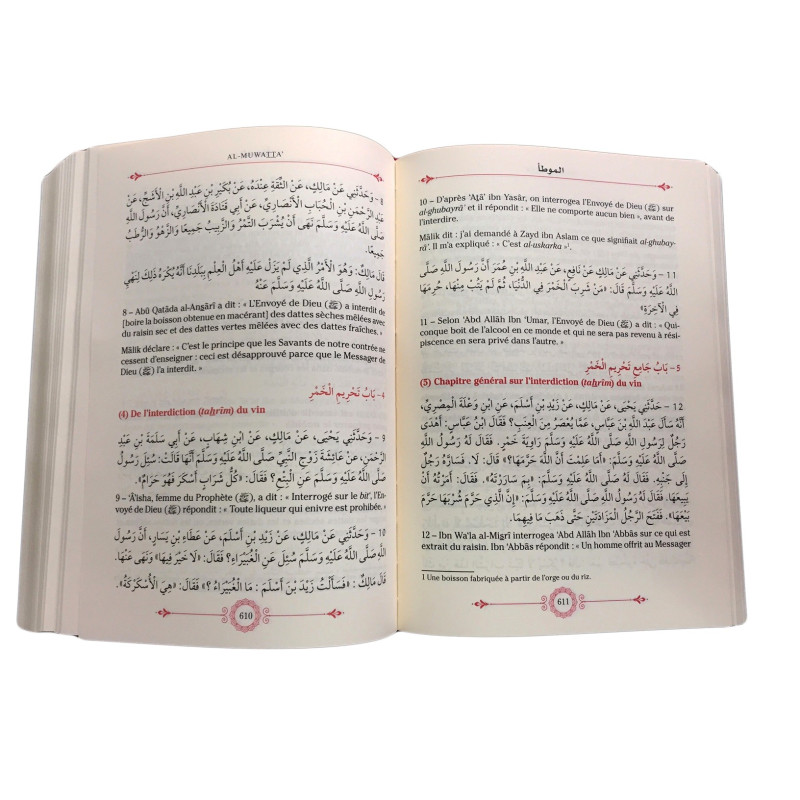 AL-MUWATTA'
8 – وَحَدَّثَنِي عَنْ مَالِكٍ، عَنْ الثِّقَةِ عِنْدَهُ، عَنْ بُكَيْرِ بْنِ عَبْدِ اللَّهِ بْنِ الْأَشَجِّ، عَنْ
عَبْدِ الرَّحْمَنِ بْنِ الْحُبَابِ الْأَنْصَارِيِّ، عَنْ أَبِي قَتَادَةَ الْأَنْصَارِيِّ، أَنَّ رَسُولَ اللَّهِ
صَلَّى اللَّهُ عَلَيْهِ وَسَلَّمَ نَهَى أَنْ يُشْرَبَ التَّمْرُ وَالزَّبِيبُ جَمِيعًا، وَالزَّهْوُ وَالرُّطَبُ
جَمِيعًا.
قَالَ مَالِكٌ: وَهُوَ الْأَمْرُ الَّذِي لَمْ يَزَلْ عَلَيْهِ أَهْلُ الْعِلْمِ بِبَلَدِنَا أَنَّهُ يُكْرَهُ ذَلِكَ لِنَهْيِ
رَسُولِ اللَّهِ صَلَّى اللَّهُ عَلَيْهِ وَسَلَّمَ عَنْهُ
8 – Abū Qatāda al-Anṣārī a dit : « L'Envoyé de Dieu (ﷺ) a interdit de
[boire la boisson obtenue en macérant] des dattes sèches mêlées avec
du raisin sec et des dattes vertes mêlées avec des dattes fraîches. »
Mālik déclare : « C'est le principe que les Savants de notre contrée ne
cessent d'enseigner : ceci est désapprouvé parce que le Messager de
Dieu (ﷺ) l'a interdit. »
4 – بَابُ تَحْرِيمِ الْخَمْرِ
(4) De l'interdiction (taḥrīm) du vin
9 – وَحَدَّثَنِي يَحْيَى، عَنْ مَالِكٍ، عَنْ ابْنِ شِهَابٍ، عَنْ أَبِي سَلَمَةَ بْنِ عَبْدِ
الرَّحْمَنِ، عَنْ عَائِشَةَ زَوْجِ النَّبِيِّ صَلَّى اللَّهُ عَلَيْهِ وَسَلَّمَ أَنَّهَا قَالَتْ: سُئِلَ رَسُولُ
اللَّهِ صَلَّى اللَّهُ عَلَيْهِ وَسَلَّمَ عَنِ الْبِتْعِ؟ فَقَالَ: «كُلُّ شَرَابٍ أَسْكَرَ فَهُوَ حَرَامٌ».
9 – 'Ā'isha, femme du Prophète (ﷺ), a dit : « Interrogé sur le bit', l'En-
voyé de Dieu (ﷺ) répondit : « Toute liqueur qui enivre est prohibée. »
10 – وَحَدَّثَنِي عَنْ مَالِكٍ، عَنْ زَيْدِ بْنِ أَسْلَمَ، عَنْ عَطَاءِ بْنِ يَسَارٍ، أَنَّ رَسُولَ
اللَّهِ صَلَّى اللَّهُ عَلَيْهِ وَسَلَّمَ سُئِلَ عَنِ الْغُبَيْرَاءِ؟ فَقَالَ: «لَا خَيْرَ فِيهَا» وَنَهَى عَنْهَا.
قَالَ مَالِكٌ: «فَسَأَلْتُ زَيْدَ بْنَ أَسْلَمَ : مَا الْغُبَيْرَاءُ ؟» فَقَالَ: «هِيَ الْأُسْكَرَكَةُ».
610
الموطأ
10 – D'après 'Aṭā' Ibn Yasār, on interrogea l'Envoyé de Dieu (ﷺ) sur
al-ghubayrā' et il répondit : « Elle ne comporte aucun bien », avant de
l'interdire.
Mālik dit : j'ai demandé à Zayd ibn Aslam ce que signifiait al-ghubay-
rā'. Il m'a expliqué : « C'est al-uskarka »¹.
11 – وَحَدَّثَنِي عَنْ مَالِكٍ عَنْ نَافِعٍ، عَنْ عَبْدِ اللَّهِ بْنِ عُمَرَ أَنَّ رَسُولَ اللَّهِ صَلَّى
اللَّهُ عَلَيْهِ وَسَلَّمَ قَالَ: «مَنْ شَرِبَ الْخَمْرَ فِي الدُّنْيَا، ثُمَّ لَمْ يَتُبْ مِنْهَا، حُرِمَهَا
فِي الْآخِرَةِ»
11 – Selon 'Abd Allāh Ibn 'Umar, l'Envoyé de Dieu (ﷺ) a dit : « Qui-
conque boit de l'alcool en ce monde et qui ne sera pas revenu à rési-
piscence en sera privé dans l'autre. »
5 – بَابُ جَامِعِ تَحْرِيمِ الْخَمْرِ
(5) Chapitre général sur l'interdiction (taḥrīm) du vin
12 – حَدَّثَنِي يَحْيَى، عَنْ مَالِكٍ، عَنْ زَيْدِ بْنِ أَسْلَمَ، عَنِ ابْنِ وَعْلَةَ الْمِصْرِيِّ،
أَنَّهُ سَأَلَ عَبْدَ اللَّهِ بْنَ عَبَّاسٍ، عَمَّا يُعْصَرُ مِنَ الْعِنَبِ؟ فَقَالَ ابْنُ عَبَّاسٍ: أَهْدَى
رَجُلٌ لِرَسُولِ اللَّهِ صَلَّى اللَّهُ عَلَيْهِ وَسَلَّمَ رَاوِيَةَ خَمْرٍ. فَقَالَ لَهُ رَسُولُ اللَّهِ
صَلَّى اللَّهُ عَلَيْهِ وَسَلَّمَ: «أَمَا عَلِمْتَ أَنَّ اللَّهَ حَرَّمَهَا؟» قَالَ: لَا. فَسَارَّهُ رَجُلٌ
إِلَى جَنْبِهِ. فَقَالَ لَهُ صَلَّى اللَّهُ عَلَيْهِ وَسَلَّمَ: «بِمَ سَارَرْتَهُ؟». فَقَالَ: أَمَرْتُهُ أَنْ
يَبِيعَهَا. فَقَالَ لَهُ رَسُولُ اللَّهِ صَلَّى اللَّهُ عَلَيْهِ وَسَلَّمَ: «إِنَّ الَّذِي حَرَّمَ شُرْبَهَا حَرَّمَ
بَيْعَهَا». فَفَتَحَ الرَّجُلُ الْمَزَادَتَيْنِ حَتَّى ذَهَبَ مَا فِيهِمَا.
12 – Ibn Wa'la al-Miṣrī interrogea 'Abd Allāh Ibn 'Abbās sur ce qui est
extrait du raisin. Ibn 'Abbās répondit : « Un homme offrit au Messager
1 Une boisson fabriquée à partir de l'orge ou du riz.
611